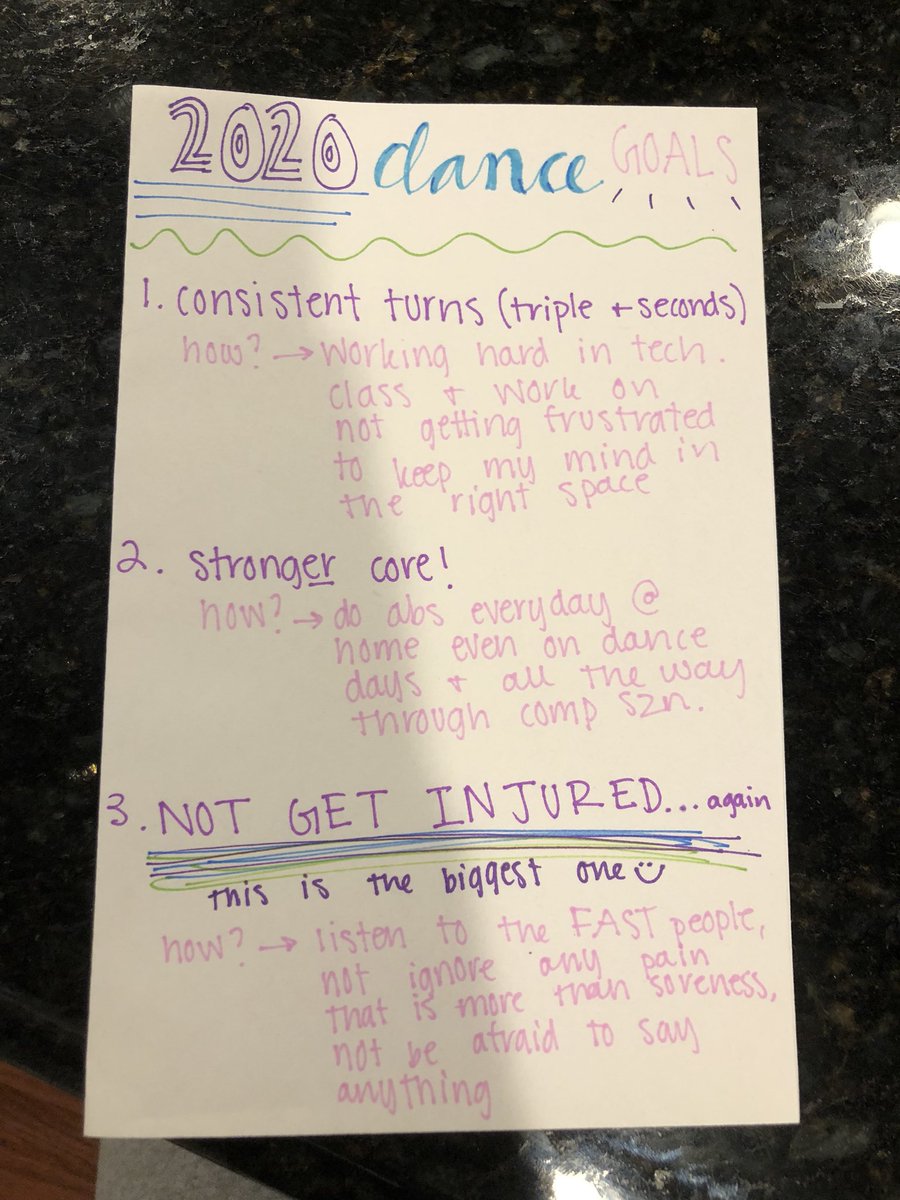 2020 dance GOALS
1. consistent turns (triple + seconds)
how? → working hard in tech.
class + work on
not getting frustrated
to keep my mind in
the right space
2. stronger core!
how? → do abs everyday @
home even on dance
days + all the way
through comp szn.
3. NOT GET INJURED... again
this is the biggest one
how? → listen to the FAST people,
not ignore any pain
that is more than soreness,
not be afraid to say
anything